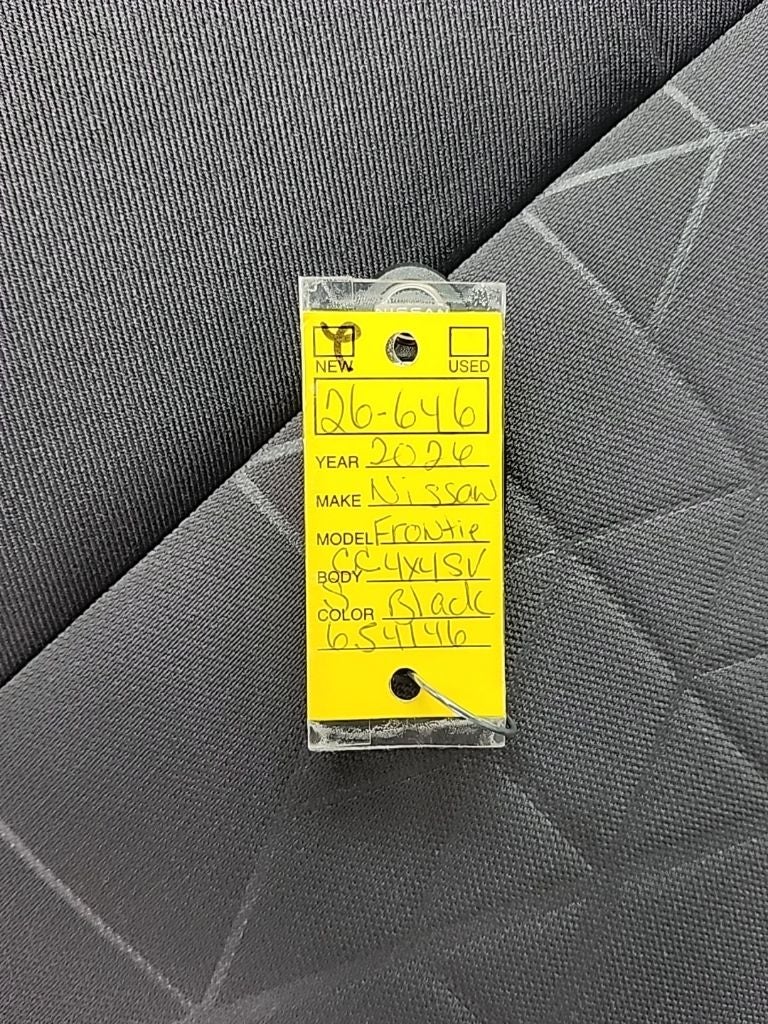 NISSAN
NEW USED
26-646
YEAR 2026
MAKE Nissan
MODEL Frontie
BODY CC 4x4 SV
COLOR Black
654146